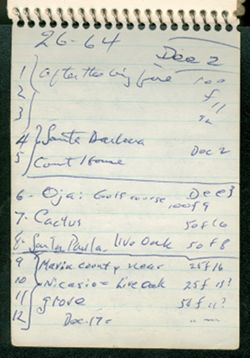 26-64
Dec 2
1 After the big fire 100
2 f
3 11
4 Santa Barbara
5 Court House Dec 2
6 - Ojai Golf course Dec 3
100 f 9
7 - Cactus 50 f 16
8 - Santa Paula live oak 50 f 8
9 Marin county near 25 f 16
10 Nicasio = Live oak 25 f 11?
11 grove 50 f 11?
12 Dec 17 =